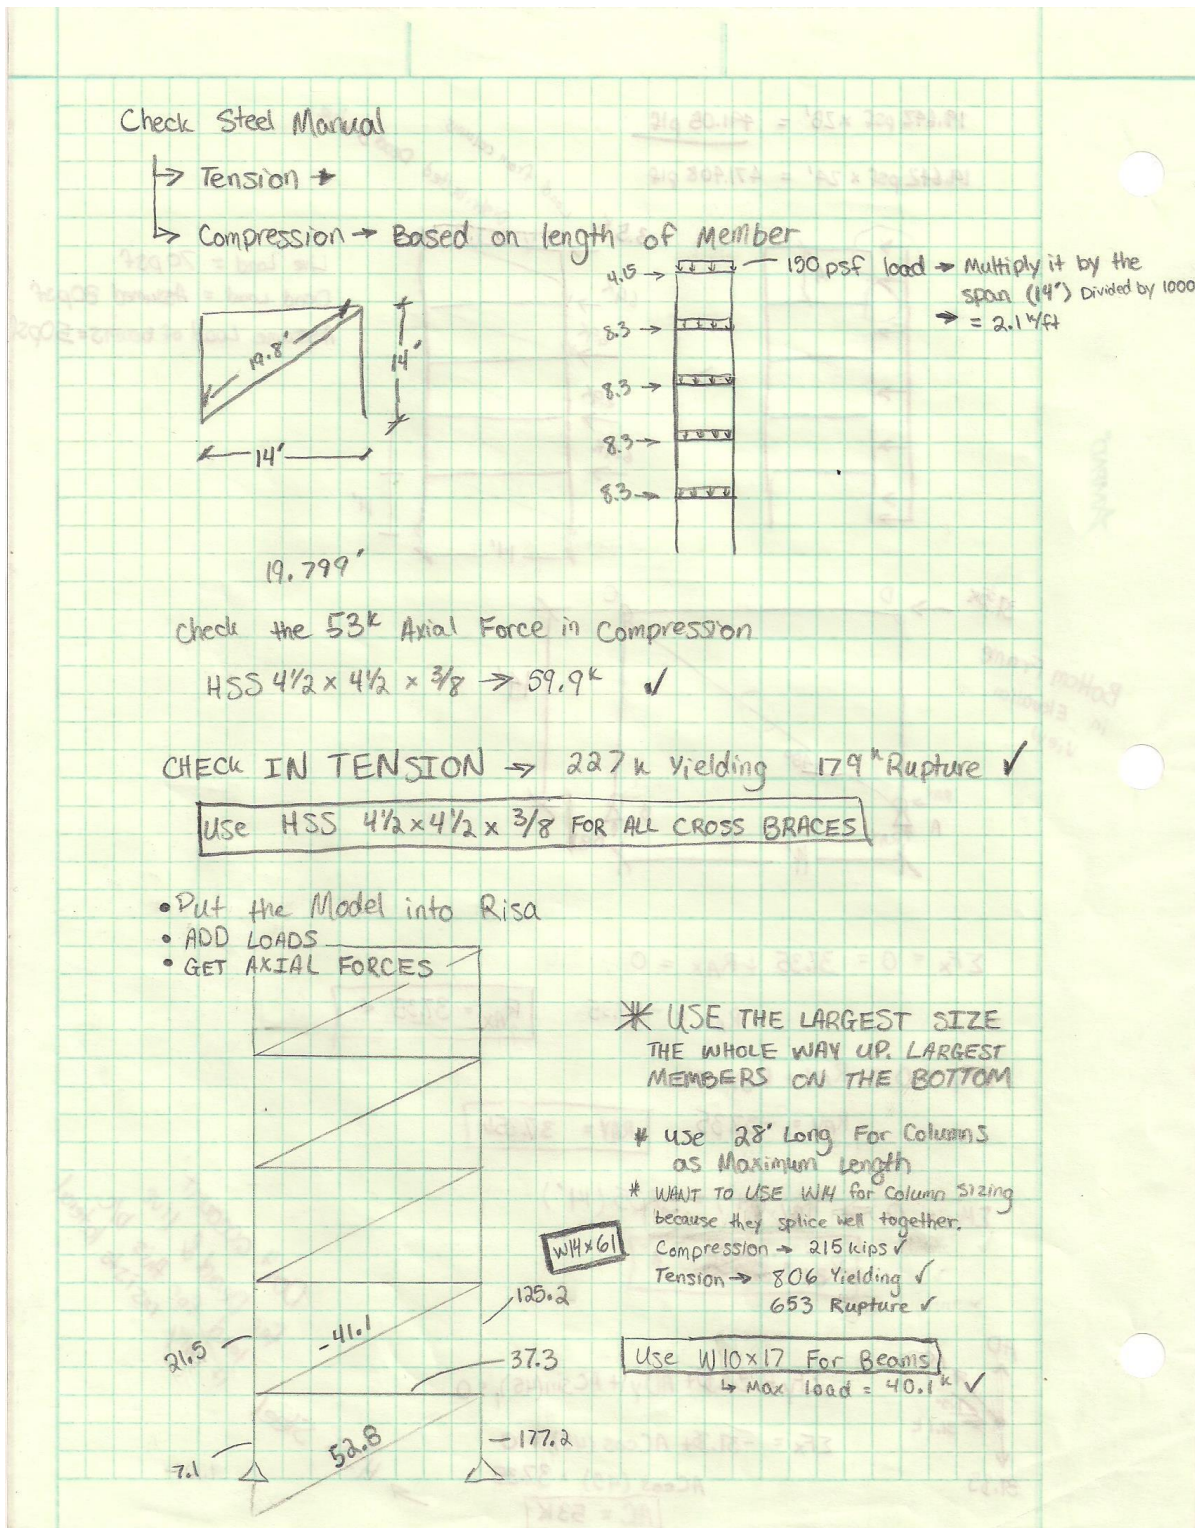 Check Steel Manual
→ Tension →
→ Compression → Based on length of Member
4.15 → 150 psf load → Multiply it by the
span (14') Divided by 1000
→ = 2.1 k/ft
8.3 →
8.3 →
8.3 →
8.3 →
19.8'
14'
14'
19.799'
Check the 53k Axial Force in Compression
HSS 4½ x 4½ x 3/8 → 59.9k ✓
CHECK IN TENSION → 227 k Yielding 179k Rupture ✓
USE HSS 4½ x 4½ x 3/8 FOR ALL CROSS BRACES
• Put the Model into Risa
• ADD LOADS
• GET AXIAL FORCES
* USE THE LARGEST SIZE
THE WHOLE WAY UP. LARGEST
MEMBERS ON THE BOTTOM
* Use 28' Long For Columns
as Maximum Length
* WANT TO USE W14 for Column Sizing
because they splice well together.
W14x61
Compression → 215 kips ✓
Tension → 806 Yielding ✓
653 Rupture ✓
Use W10x17 For Beams
↳ Max load = 40.1k ✓
125.2
21.5
-41.1
37.3
52.8
177.2
7.1